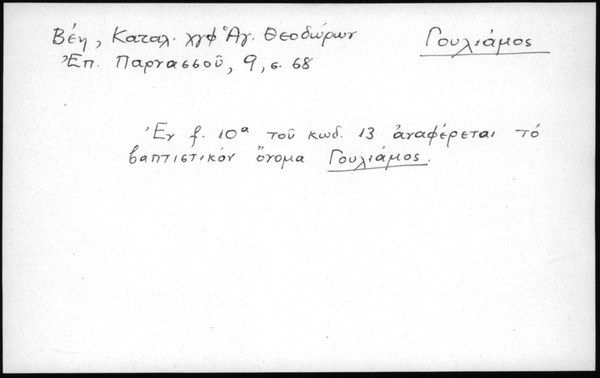 Βέη, Καταλ. χγφ Ἁγ. Θεοδώρων Γουλιάμος
Ἐπ. Παρνασσοῦ, 9, σ. 68
Ἐν f. 10α τοῦ κωδ. 13 ἀναφέρεται τό
βαπτιστικόν ὄνομα Γουλιάμος.